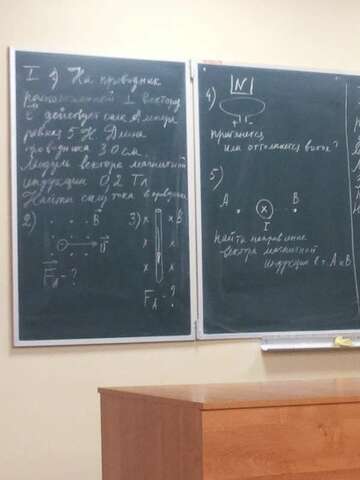 I 1) На проводник
расположенный ⊥ вектору
действует сила Ампера
равная 5 Н. Длина
проводника 30 см.
Модуль вектора магнитной
индукции 0,2 Тл
Найти силу тока в проводнике
2) B
v
Fл - ?
3) B
FA - ?
4) N
+ | -
притянется
или оттолкнется виток?
5)
A B
I
Найти направление
вектора магнитной
индукции в т. A и B